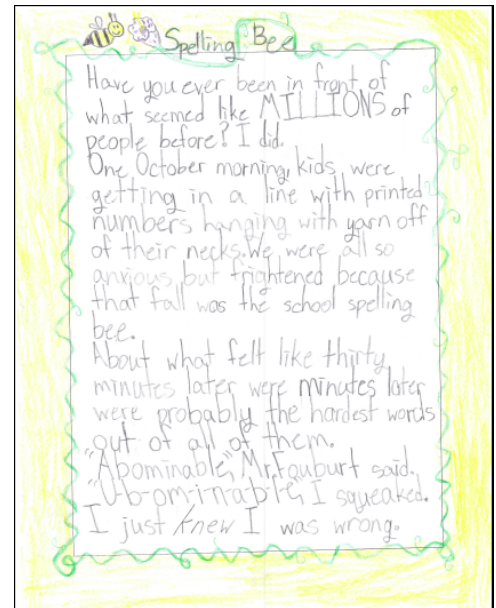 Spelling Bee
Have you ever been in front of
what seemed like MILLIONS of
people before? I did.
One October morning, kids were
getting in a line with printed
numbers hanging with yarn off
of their necks. We were all so
anxious but frightened because
that fall was the school spelling
bee.
About what felt like thirty
minutes later were minutes later
were probably the hardest words
out of all of them.
"Abominable," Mr. Fauburt said.
"U-b-om-i-nable," I squeaked.
I just knew I was wrong.